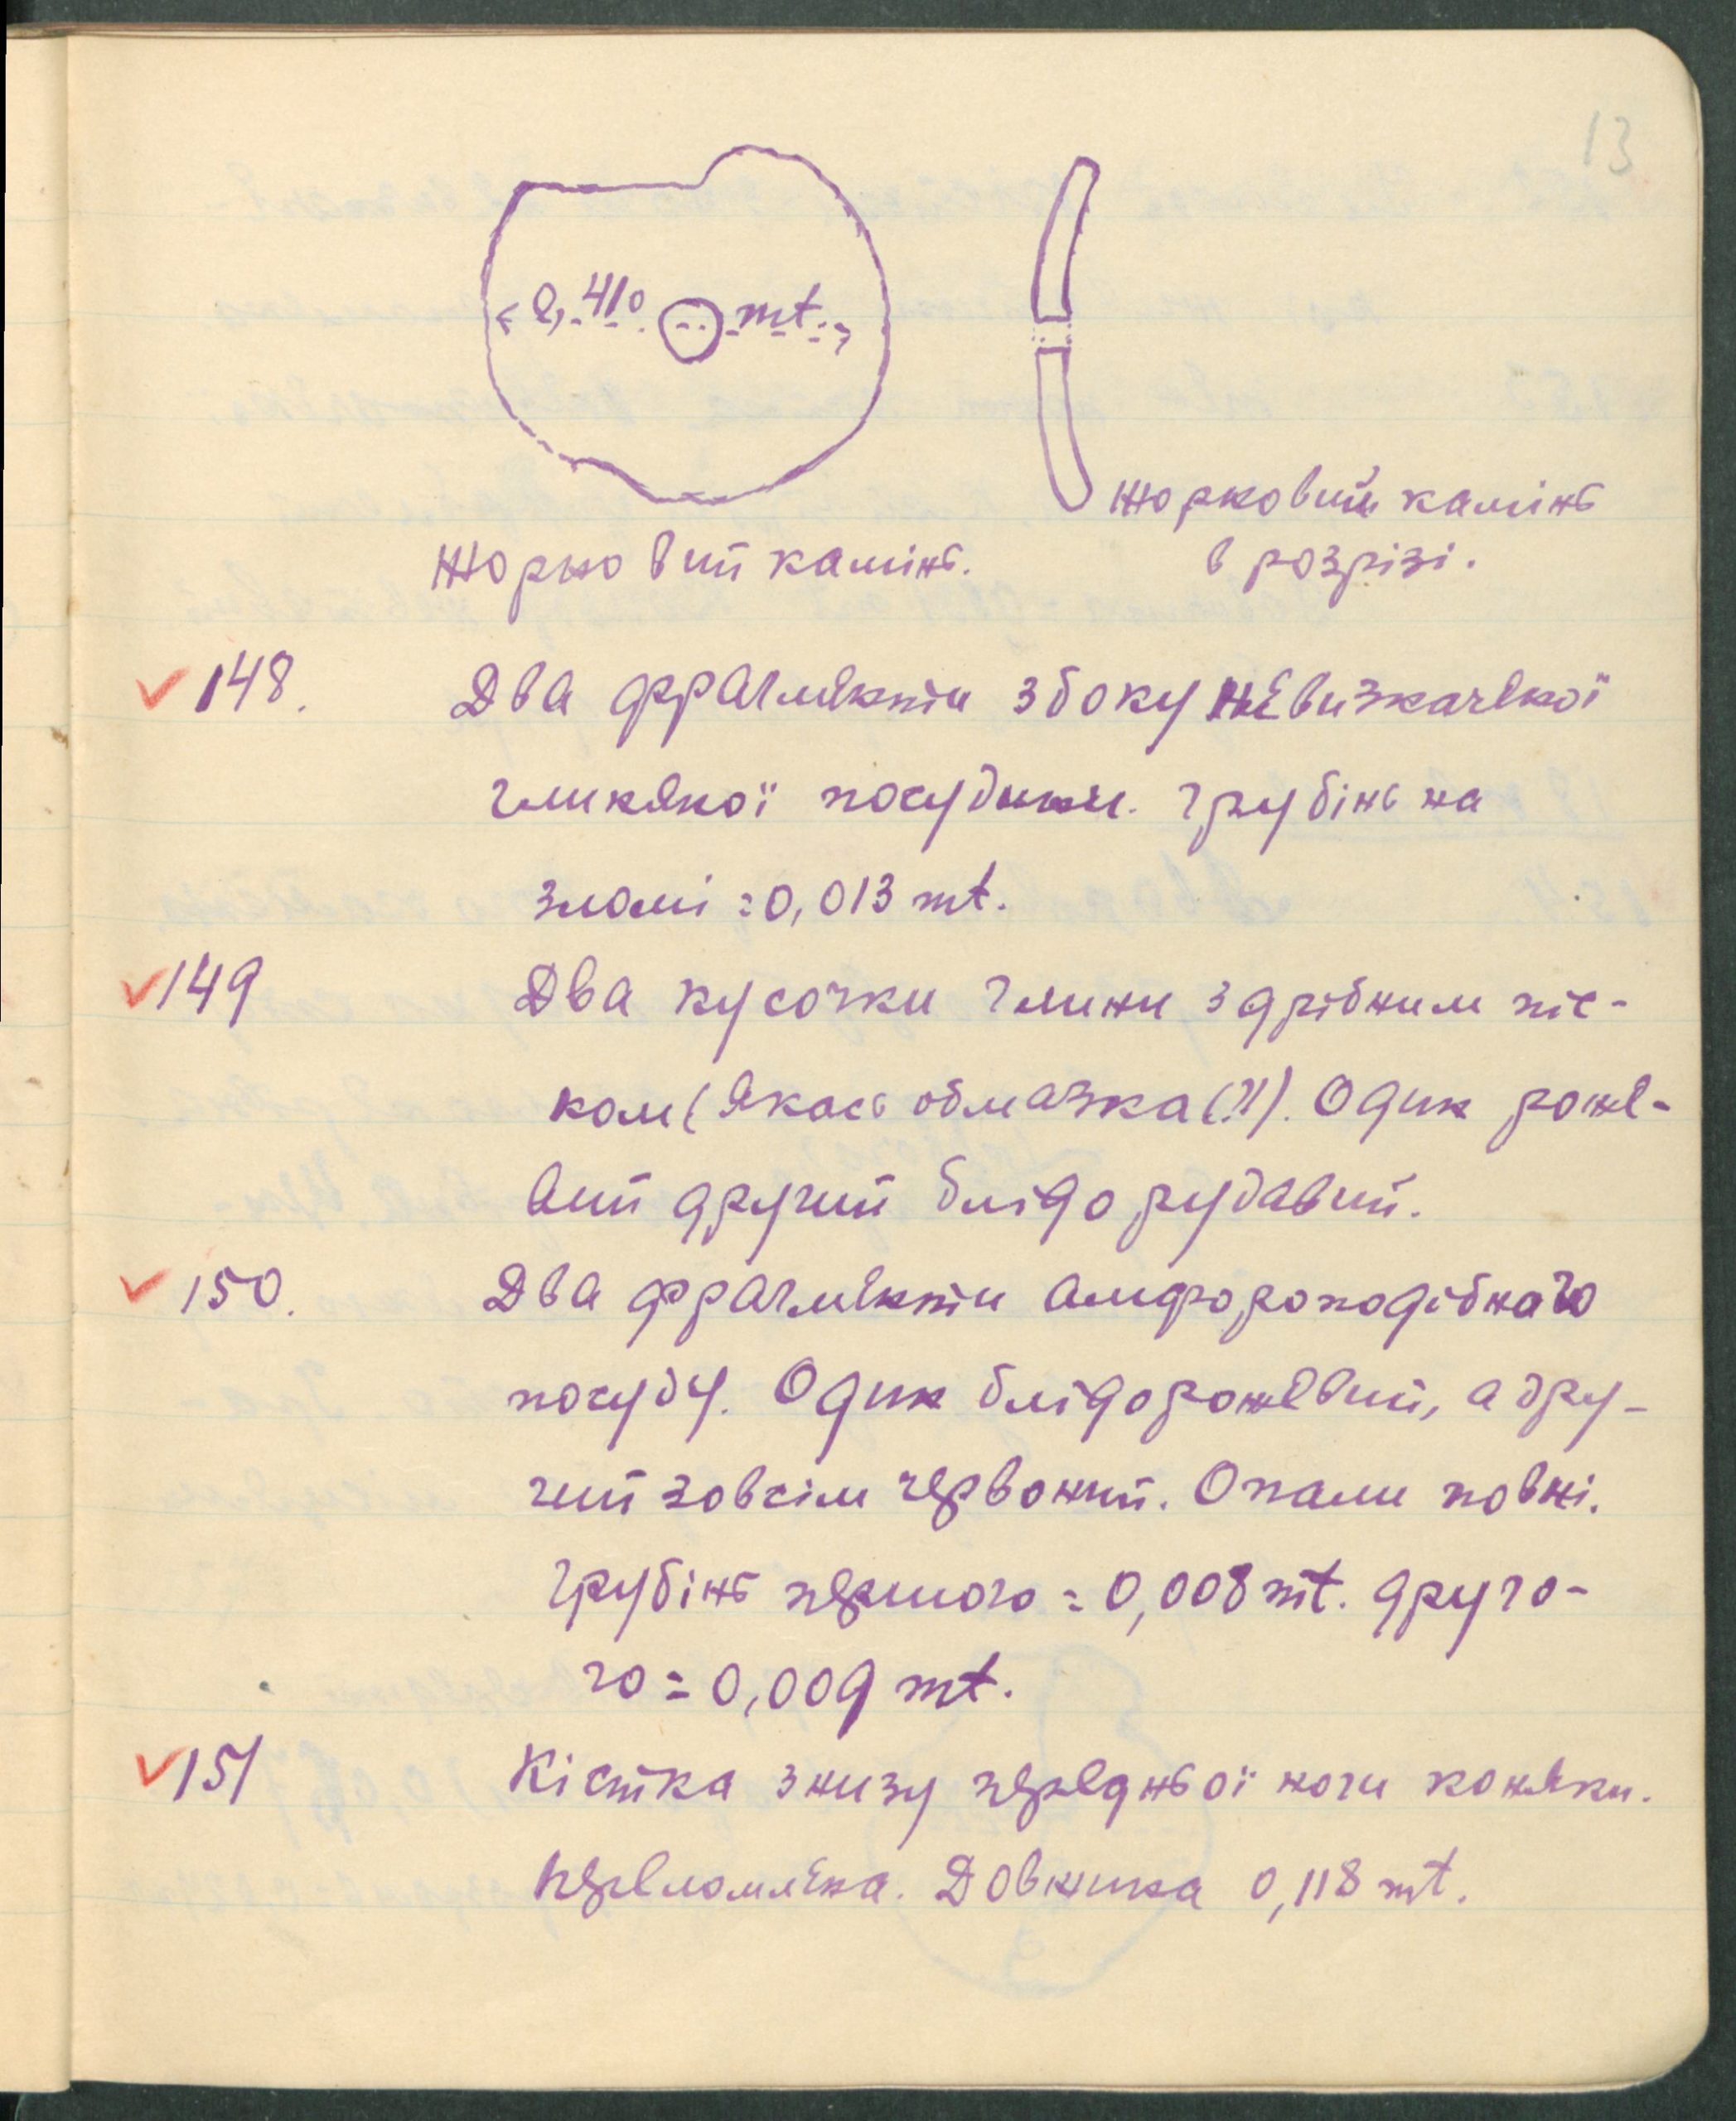 13
0,410 mt.
Жорновий камінь
в розрізі.
Жорновий камінь.
148. Два фрагменти з боку невизначеної
глиняної посудини. Грубінь на
зломі = 0,013 mt.
149 Два кусочки глини з дрібним піс-
ком (якась обмазка(?)). Один роже-
вий другий блідо рудавий.
150. Два фрагменти амфороподібного
посуду. Один блідорожевий, а дру-
гий зовсім червоний. Опали повні.
Грубінь першого = 0,008 mt. друго-
го = 0,009 mt.
151 Кістка знизу передньої ноги коняки.
Переломлена. Довжина 0,118 mt.